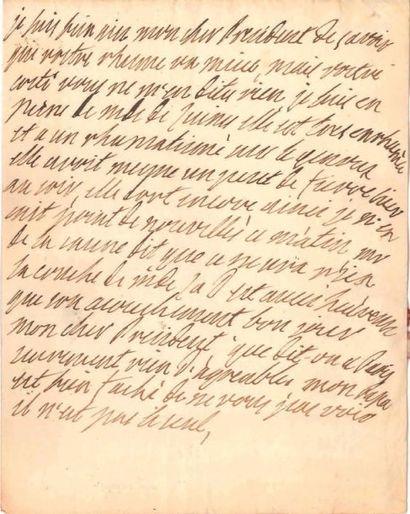 je suis bien aise mon cher President de savoir
que vostre rhume va mieux, mais vostre
costé vous ne m'en dites rien, je suis en
peine de md de elle est tous enrhumée
et a un rhumatisme sur le genoux
elle avoit meme un peu de fievre hier
au soir elle dort encore ainsi je n'en
sait point de nouvelles ce matin mr
de la dit que ce ne sera rien
la couche de md est aussi heureuse
que son acouchement bon jour
mon cher President, que dit on a Paris
surement rien d'agreable, mon papa
est bien faché de ne vous pas voir
il n'est pas le seul,